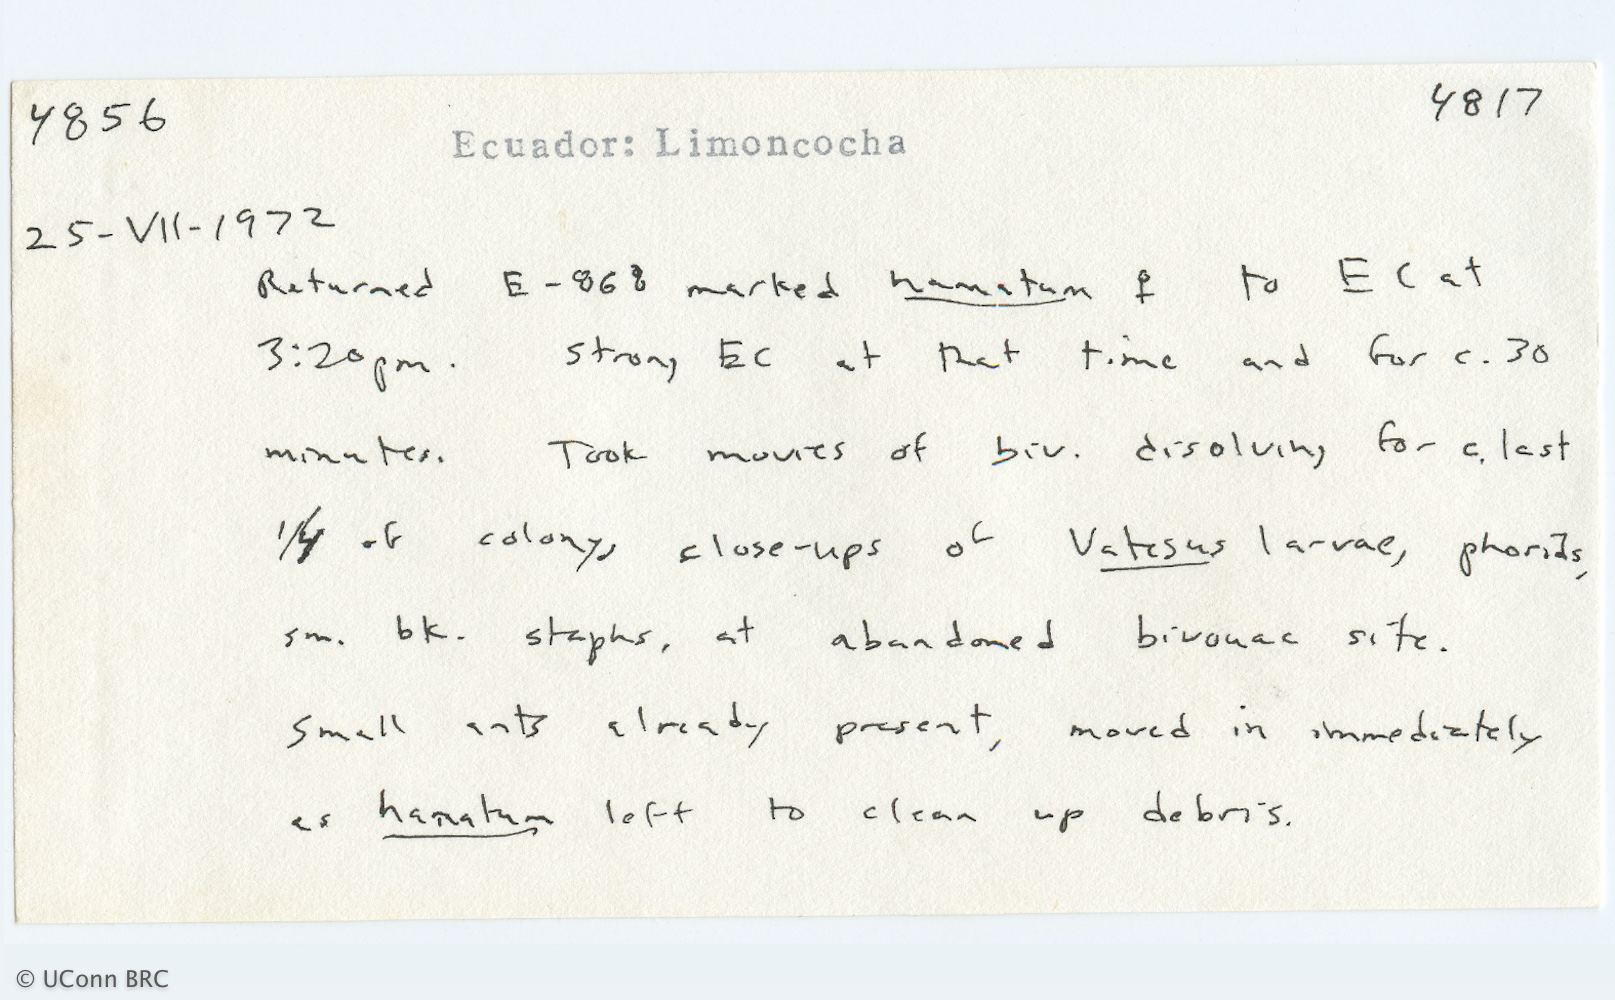 4856
4817
Ecuador: Limoncocha
25-VII-1972
Returned E-868 marked hamatum ♀ to EC at
3:20pm. Strong EC at that time and for c. 30
minutes. Took movies of biv. disolving for c. last
1/4 of colony, close-ups of Vatesus larvae, phorids,
sm. bk. staphs, at abandoned bivouac site.
Small ants already present, moved in immediately
as hamatum left to clean up debris.
© UConn BRC